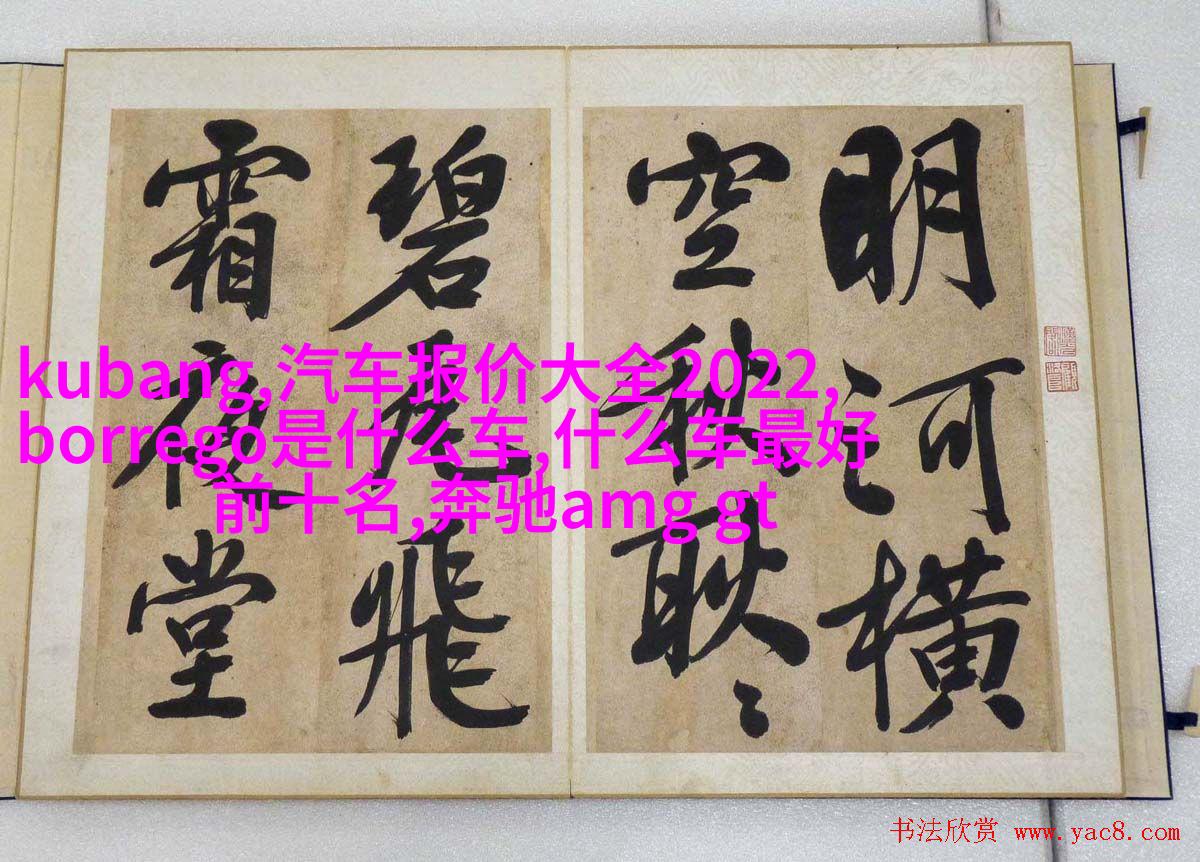 明河横
空秋耿〻
碧瓦飛
霜夜堂
kubang,汽车报价大全2022,
borrego是什么车,什么车最好
前十名,奔驰amg gt
书法欣赏 www.yac8.com